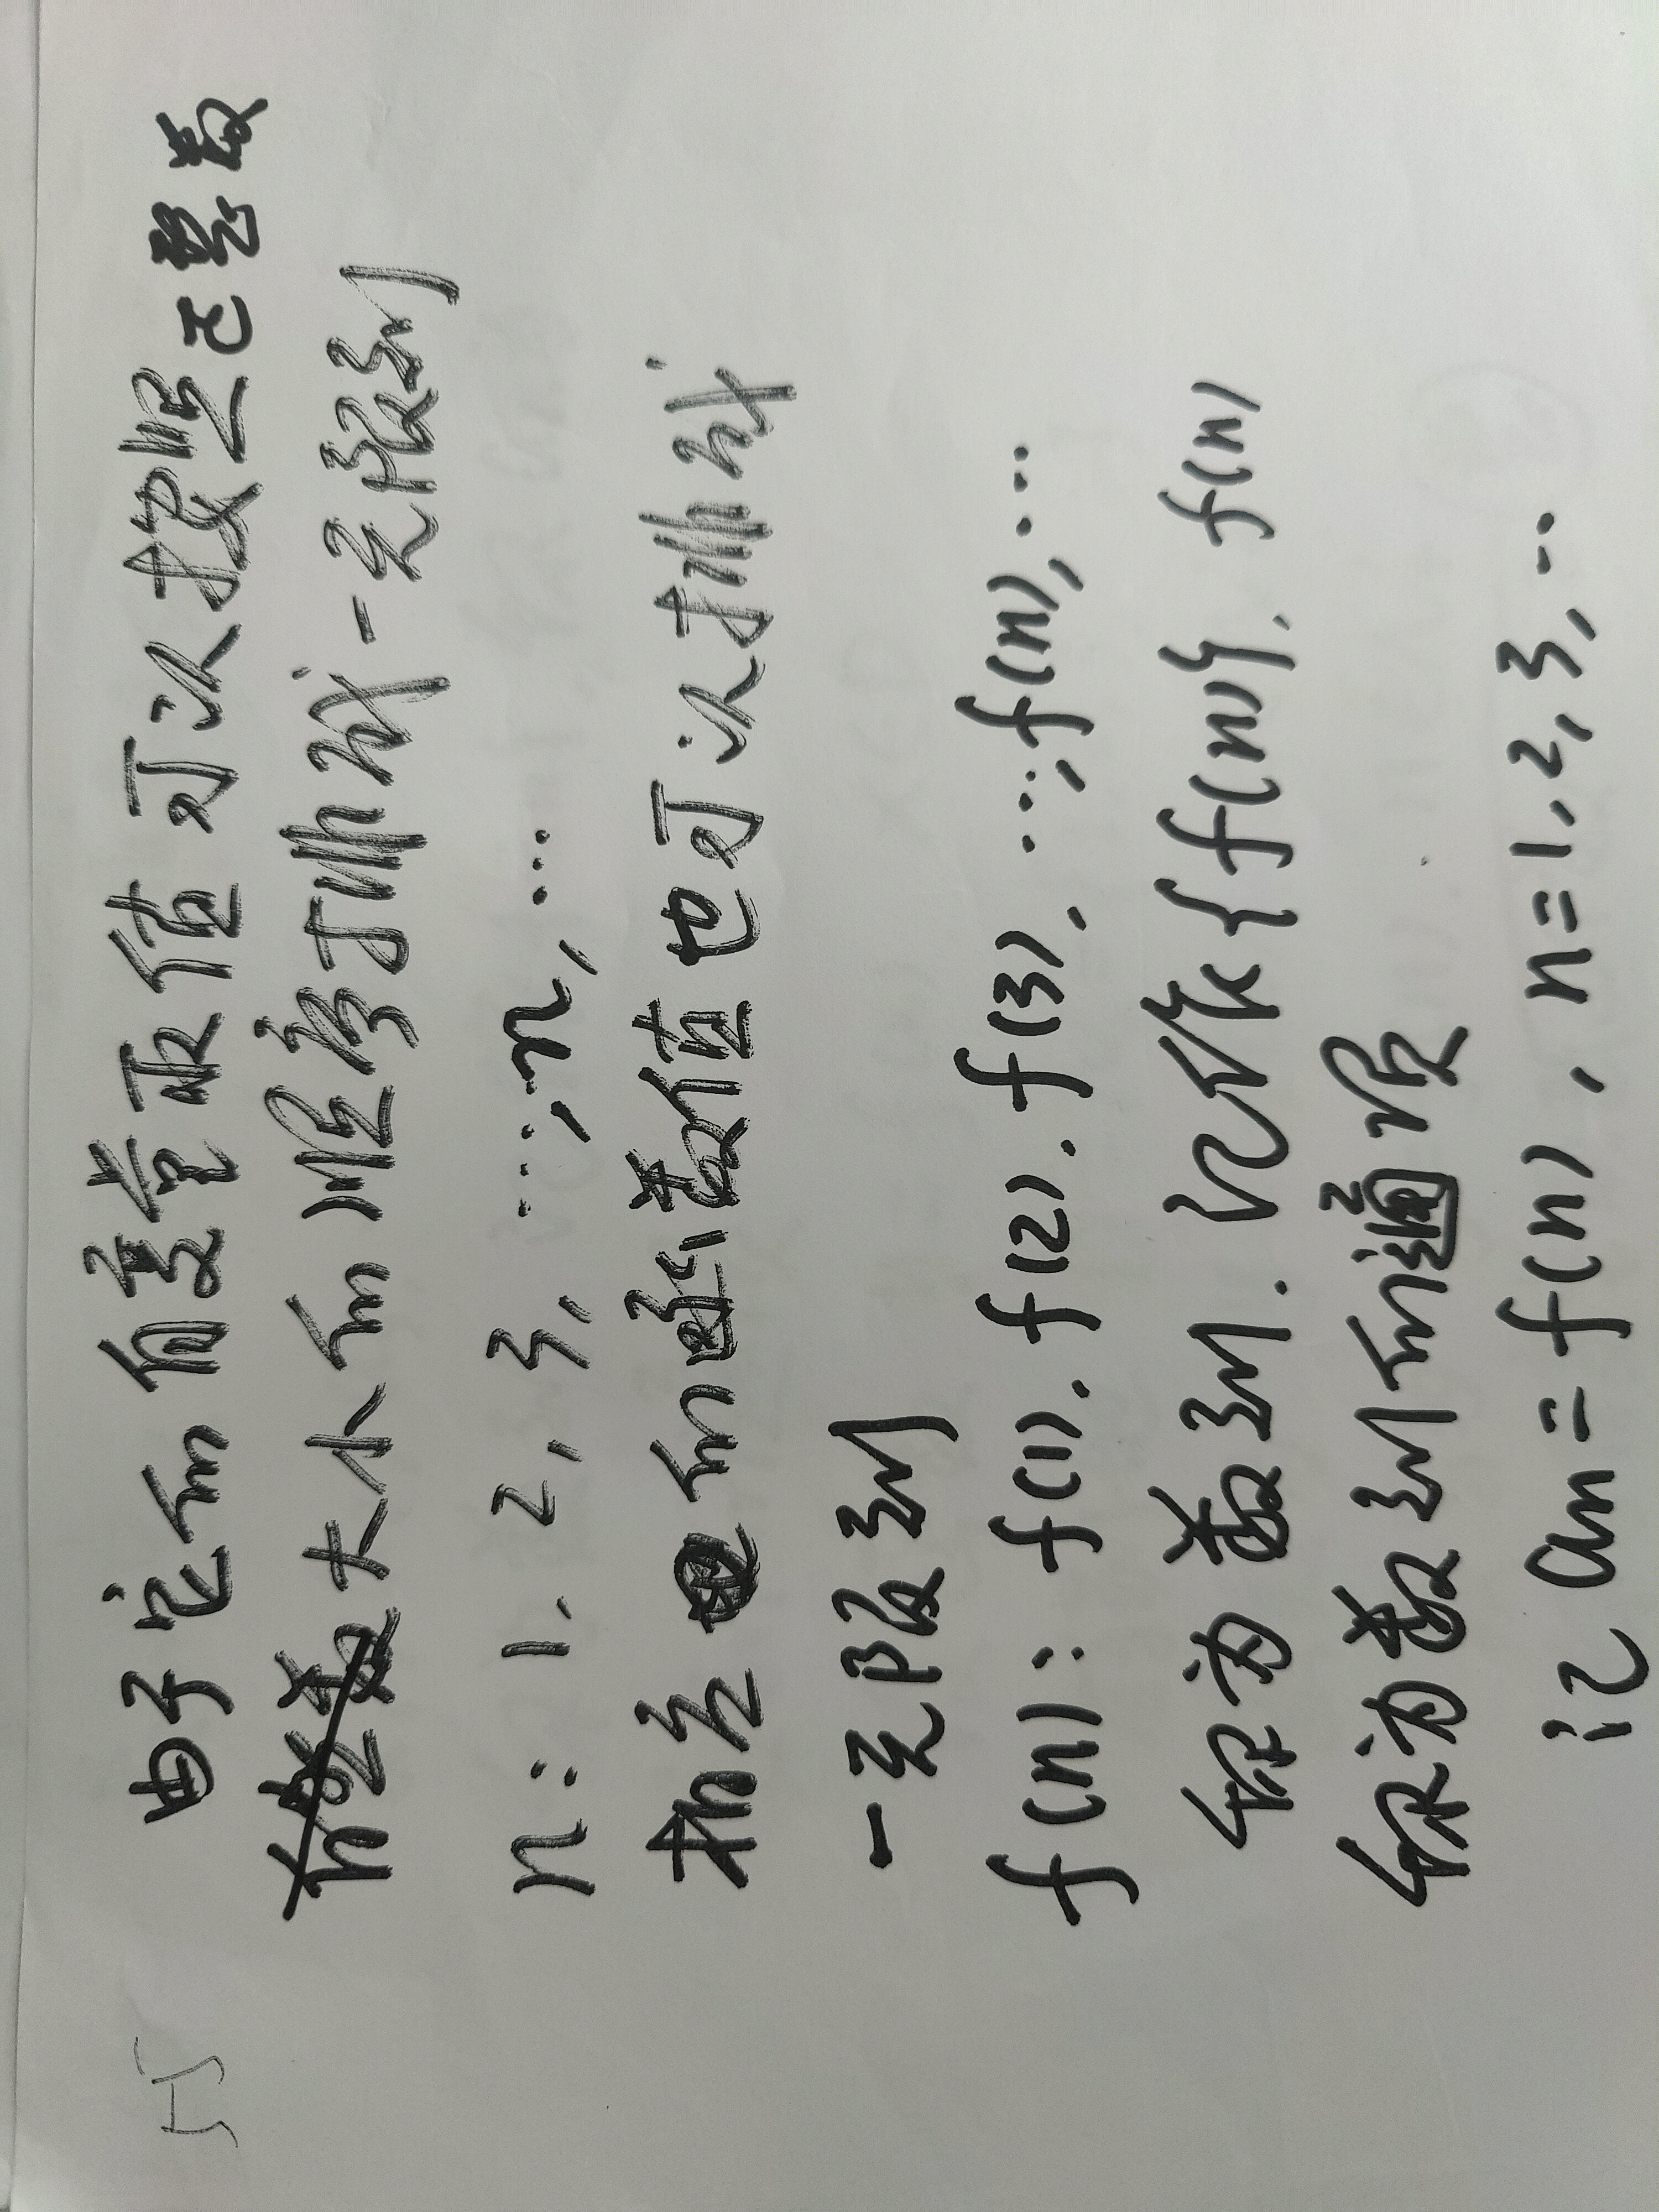 55
由于它的自变量取值可以按照正整数
大小的顺序排成一无限列
n: 1, 2, 3, …, n, …
相应的函数值也可以排成
一无限列
f(n): f(1), f(2), f(3), …, f(n), …
称为数列. 记作{f(n)}, f(n)
称为数列的通项
记 an = f(n), n=1,2,3,…